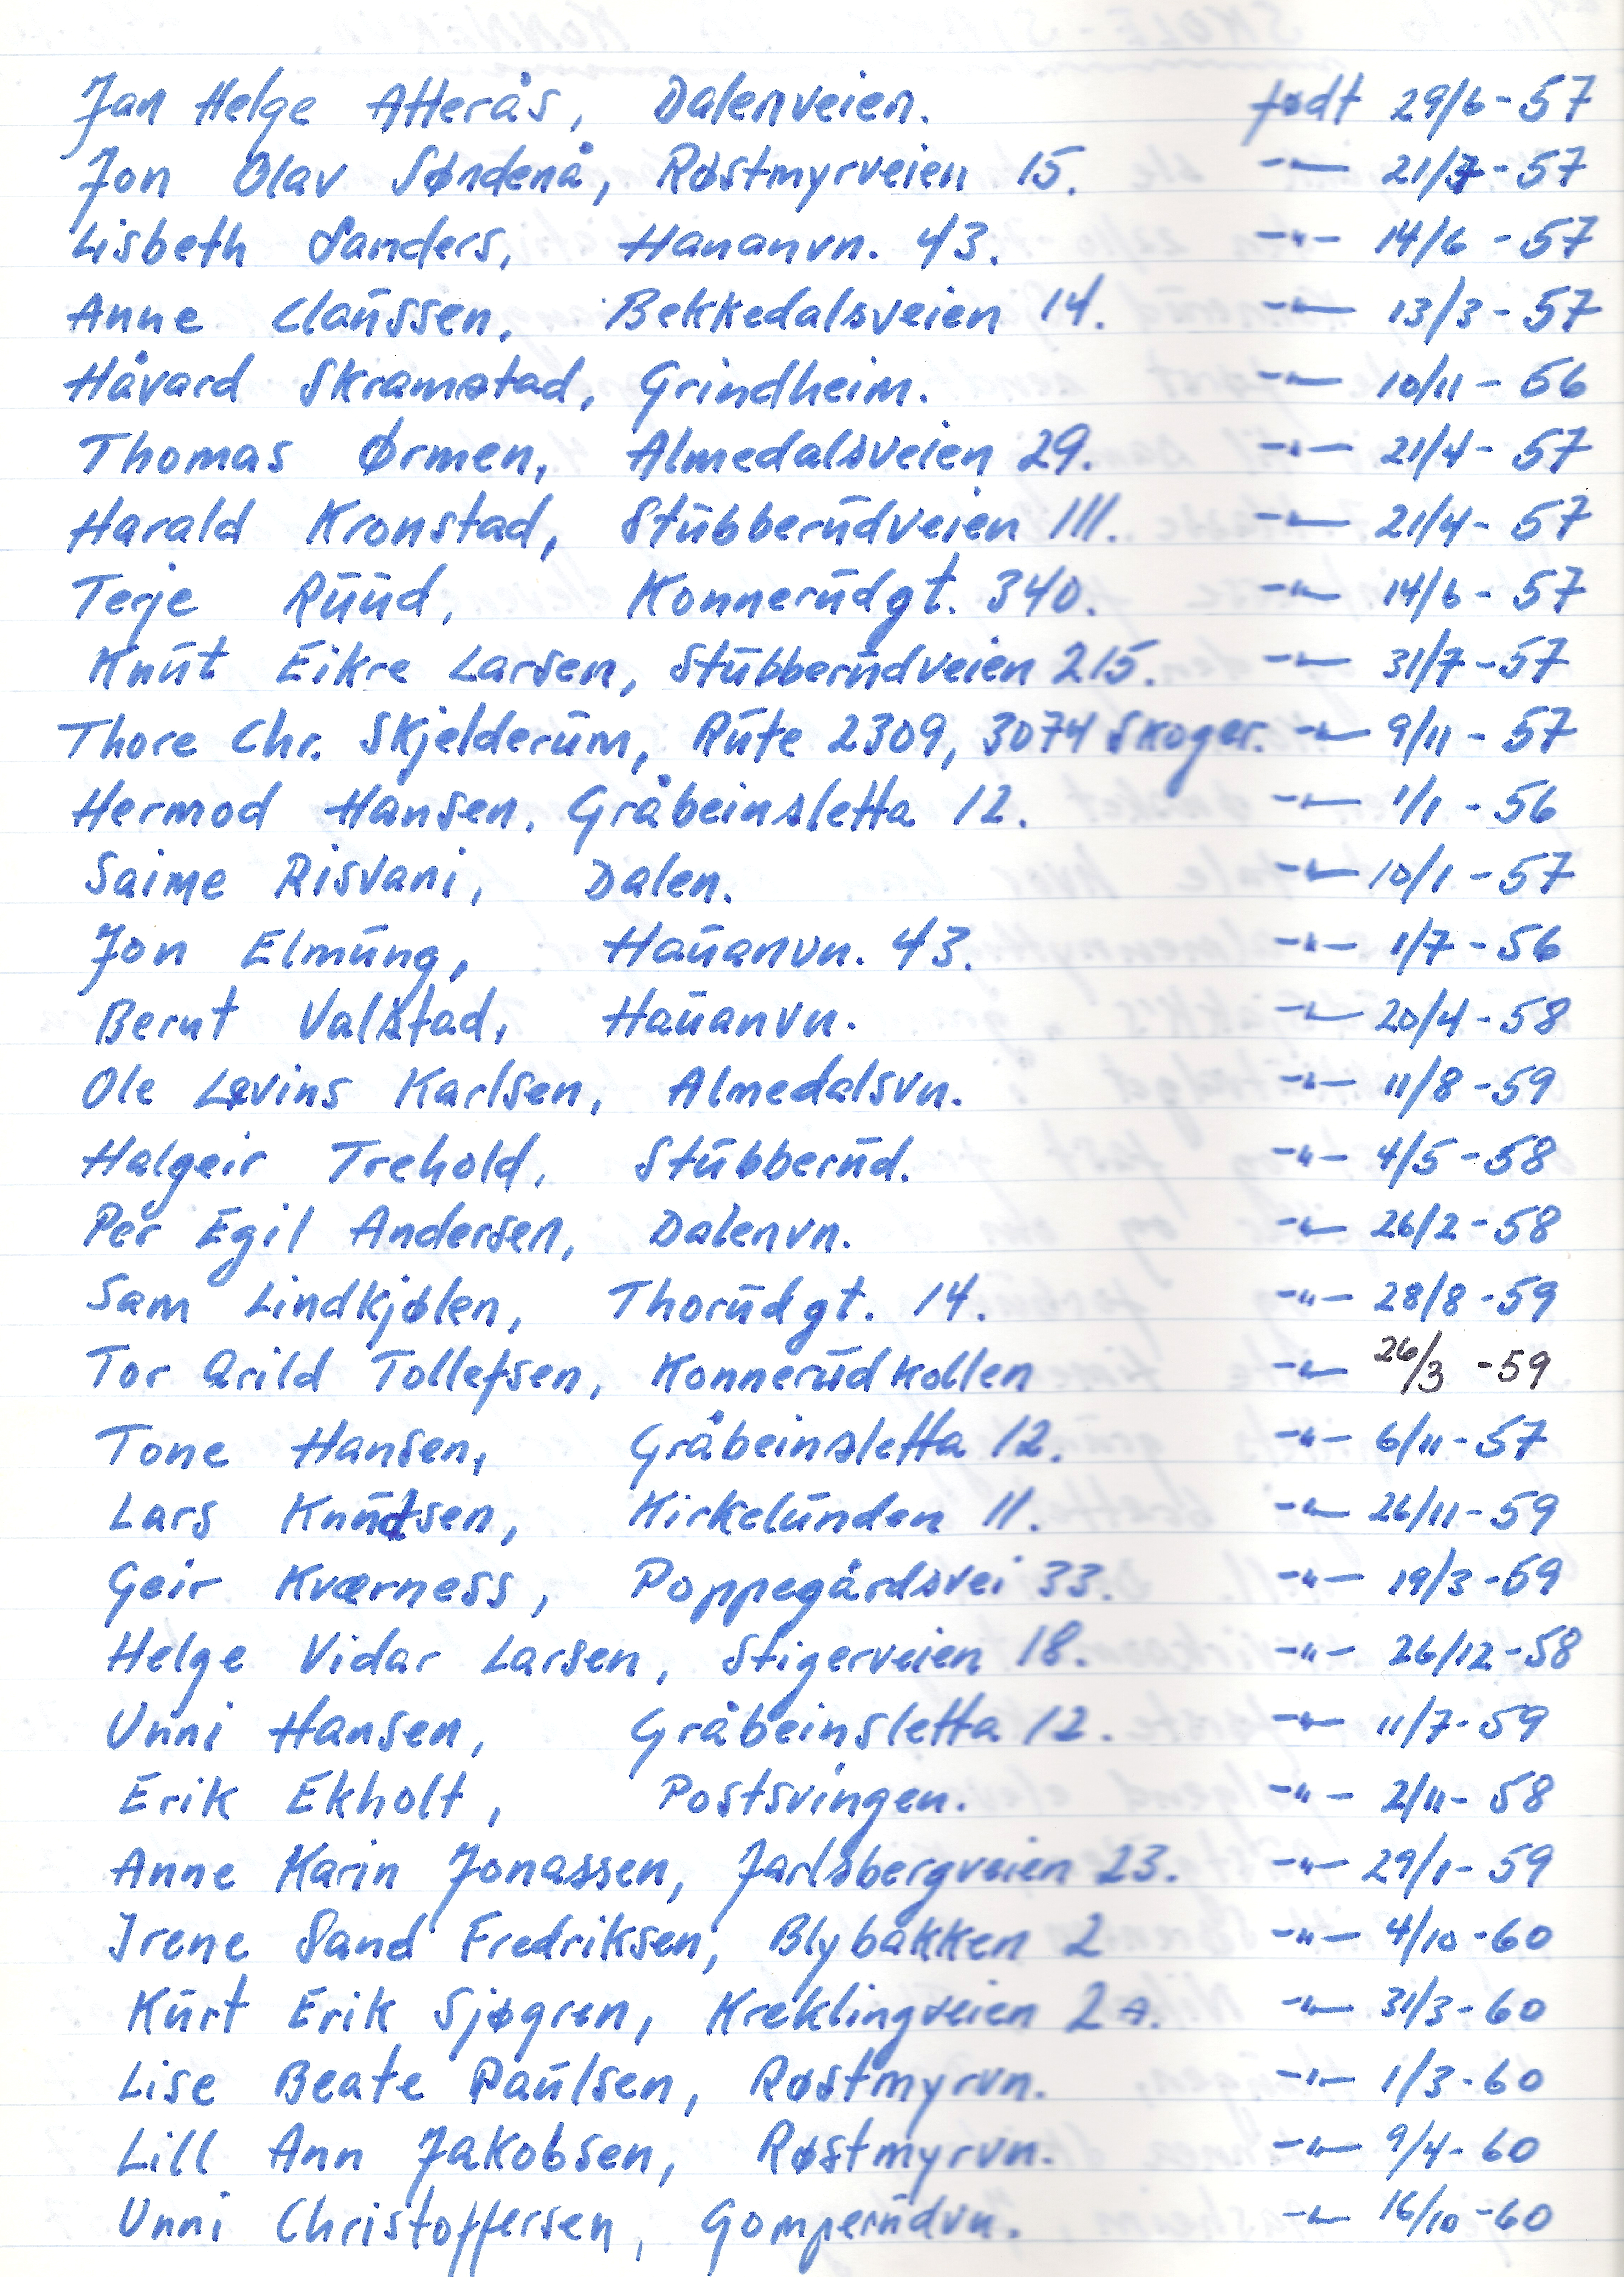 Jan Helge Atterås, Dalenveien. født 29/6-57
Jon Olav Søndenå, Røstmyrveien 15. -"- 21/7-57
Lisbeth Sanders, Hauanvn. 43. -"- 14/6-57
Anne Claussen, Bekkedalsveien 14. -"- 13/3-57
Håvard Skramstad, Grindheim. -"- 10/11-56
Thomas Ørmen, Almedalsveien 29. -"- 21/4-57
Harald Kronstad, Stubberudveien 111. -"- 21/4-57
Terje Ruud, Konnerudgt. 340. -"- 14/6-57
Knut Eikre Larsen, Stubberudveien 215. -"- 31/7-57
Thore Chr. Skjelderum, Rute 2309, 3074 Skoger. -"- 9/11-57
Hermod Hansen, Gråbeinsletta 12. -"- 1/1-56
Saime Risvani, Dalen. -"- 10/1-57
Jon Elmung, Hauanvn. 43. -"- 1/7-56
Bernt Valstad, Hauanvn. -"- 20/4-58
Ole Levins Karlsen, Almedalsvn. -"- 11/8-59
Halgeir Trehold, Stubberud. -"- 4/5-58
Per Egil Andersen, Dalenvn. -"- 26/2-58
Sam Lindkjølen, Thorudgt. 14. -"- 28/8-59
Tor Arild Tollefsen, Konnerudkollen -"- 26/3-59
Tone Hansen, Gråbeinsletta 12. -"- 6/11-57
Lars Knudsen, Kirkelunden 11. -"- 26/11-59
Geir Kværness, Poppegårdsvei 33. -"- 19/3-59
Helge Vidar Larsen, Stigerveien 18. -"- 26/12-58
Unni Hansen, Gråbeinsletta 12. -"- 11/7-59
Erik Ekholt, Postsvingen. -"- 2/11-58
Anne Karin Jonassen, Jarlsbergveien 23. -"- 29/1-59
Irene Sand Fredriksen, Blybakken 2 -"- 4/10-60
Kurt Erik Sjøgren, Kreklingveien 2A. -"- 31/3-60
Lise Beate Paulsen, Røstmyrvn. -"- 1/3-60
Lill Ann Jakobsen, Røstmyrvn. -"- 9/4-60
Unni Christoffersen, Gomperudvn. -"- 16/10-60